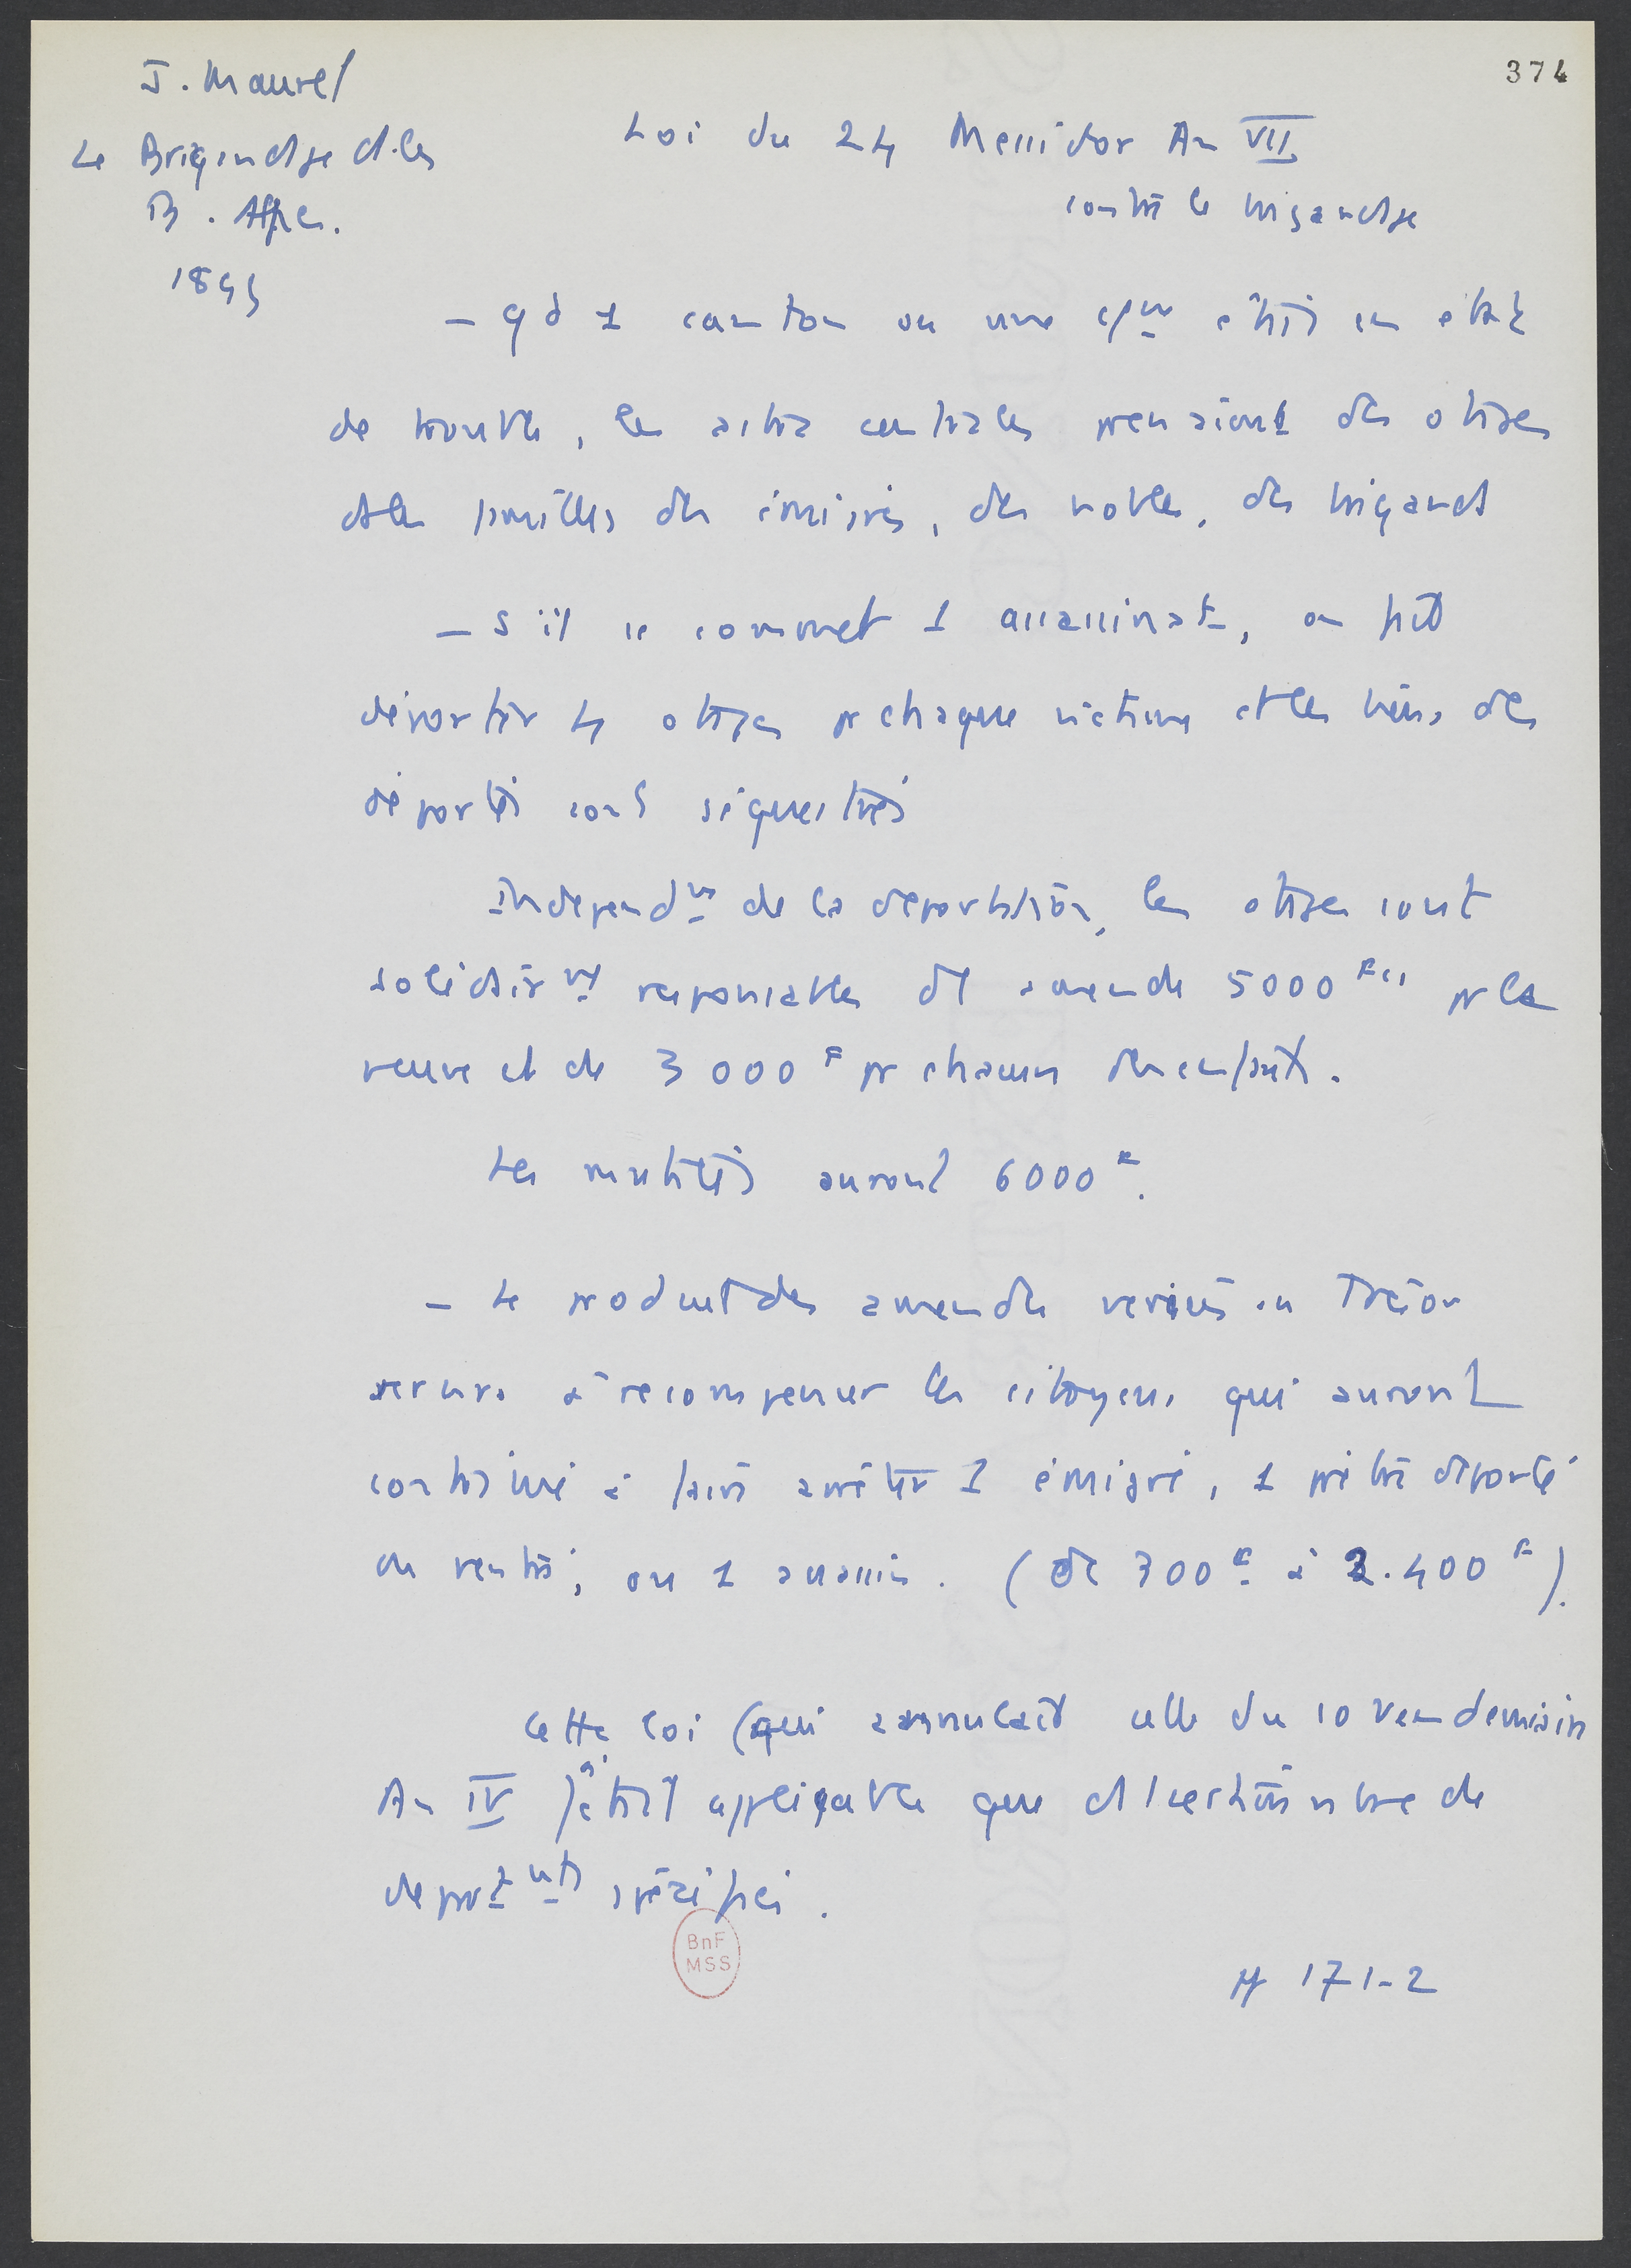 374
J. Maurel
Le Brigandage ds les
B. Alpes.
1899
Loi du 24 Messidor An VII
contre le brigandage
– qd 1 canton ou une cne était en état
de trouble, les centrales prenaient des otages
ds les familles des émigrés, des nobles, des brigands
– S'il se commet 1 assassinat, on fait
déporter 4 otages pr chaque victime et les biens des
déportés sont séquestrés
Independt de la déportation, les otages sont
solidairt responsables d'1 amende 5000 Fcs pr la
veuve et de 3000 F pr chacun des enfants.
Les mutilés auront 6000 F.
– Le produit des amendes versées au Trésor
servira à recompenser les citoyens qui auront
contribué à faire arrêter 1 émigré, 1 prêtre déporté
ou rentré, ou 1 assassin. (de 300 F à 2.400 F).
Cette loi (qui annulait celle du 10 Vendemiaire
An IV) n'était applicable que ds 1 certain nbre de
departnts spécifiés.
BnF
MSS
pp 171-2